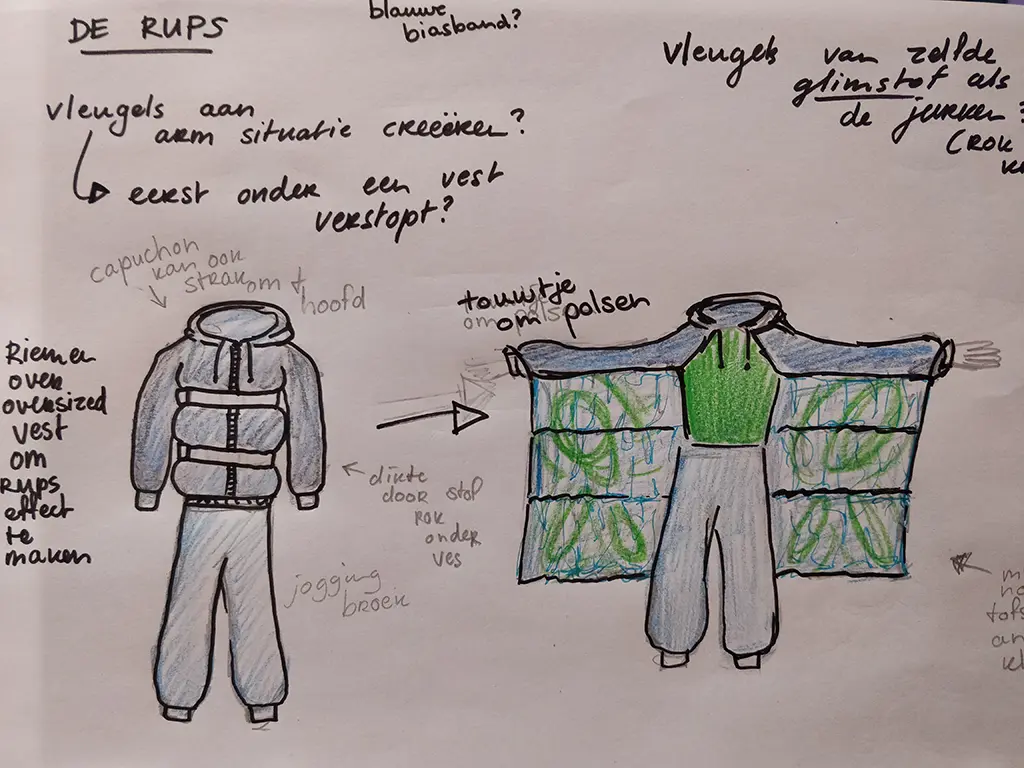 DE RUPS
blauwe
biasband?
vleugels van zelfde
glimstof als
de jurken?
(ROK
vleugels aan
arm situatie creëëren?
eerst onder een vest
verstopt?
capuchon
kan ook
strak om 't
hoofd
touwtje
om polsen
Riemen
over
oversized
vest
om
Rups
effect
te
maken
dikte
door stof
rok
onder
ves
jogging
broek